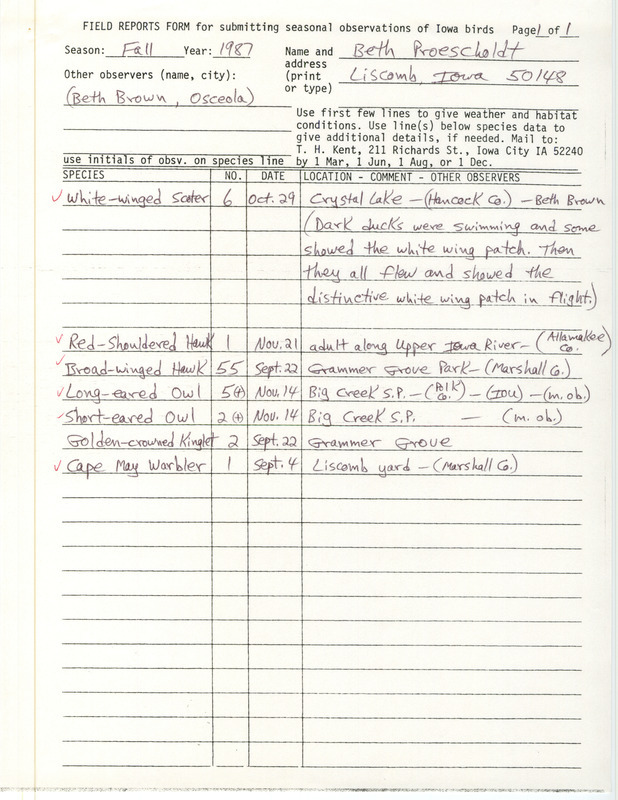 FIELD REPORTS FORM for submitting seasonal observations of Iowa birds Page 1 of 1
Season: Fall Year: 1987
Name and address (print or type) Beth Proescholdt
Liscomb, Iowa 50148
Other observers (name, city):
(Beth Brown, Osceola)
Use first few lines to give weather and habitat
conditions. Use line(s) below species data to
give additional details, if needed. Mail to:
T. H. Kent, 211 Richards St., Iowa City IA 52240
by 1 Mar, 1 Jun, 1 Aug, or 1 Dec.
use initials of obsv. on species line
SPECIES NO. DATE LOCATION - COMMENT - OTHER OBSERVERS
✓ White-winged Scoter 6 Oct. 29 Crystal Lake - (Hancock Co.) - Beth Brown
(Dark ducks were swimming and some
showed the white wing patch. Then
they all flew and showed the
distinctive white wing patch in flight.)
✓ Red-Shouldered Hawk 1 Nov. 21 adult along Upper Iowa River - (Allamakee Co.)
✓ Broad-winged Hawk 55 Sept. 22 Grammer Grove Park - (Marshall Co.)
✓ Long-eared Owl 5(+) Nov. 14 Big Creek S.P. - (Polk Co.) - (IOU) - (m. ob.)
✓ Short-eared Owl 2(+) Nov. 14 Big Creek S.P. — (m. ob.)
Golden-crowned Kinglet 2 Sept. 22 Grammer Grove
✓ Cape May Warbler 1 Sept. 4 Liscomb yard - (Marshall Co.)